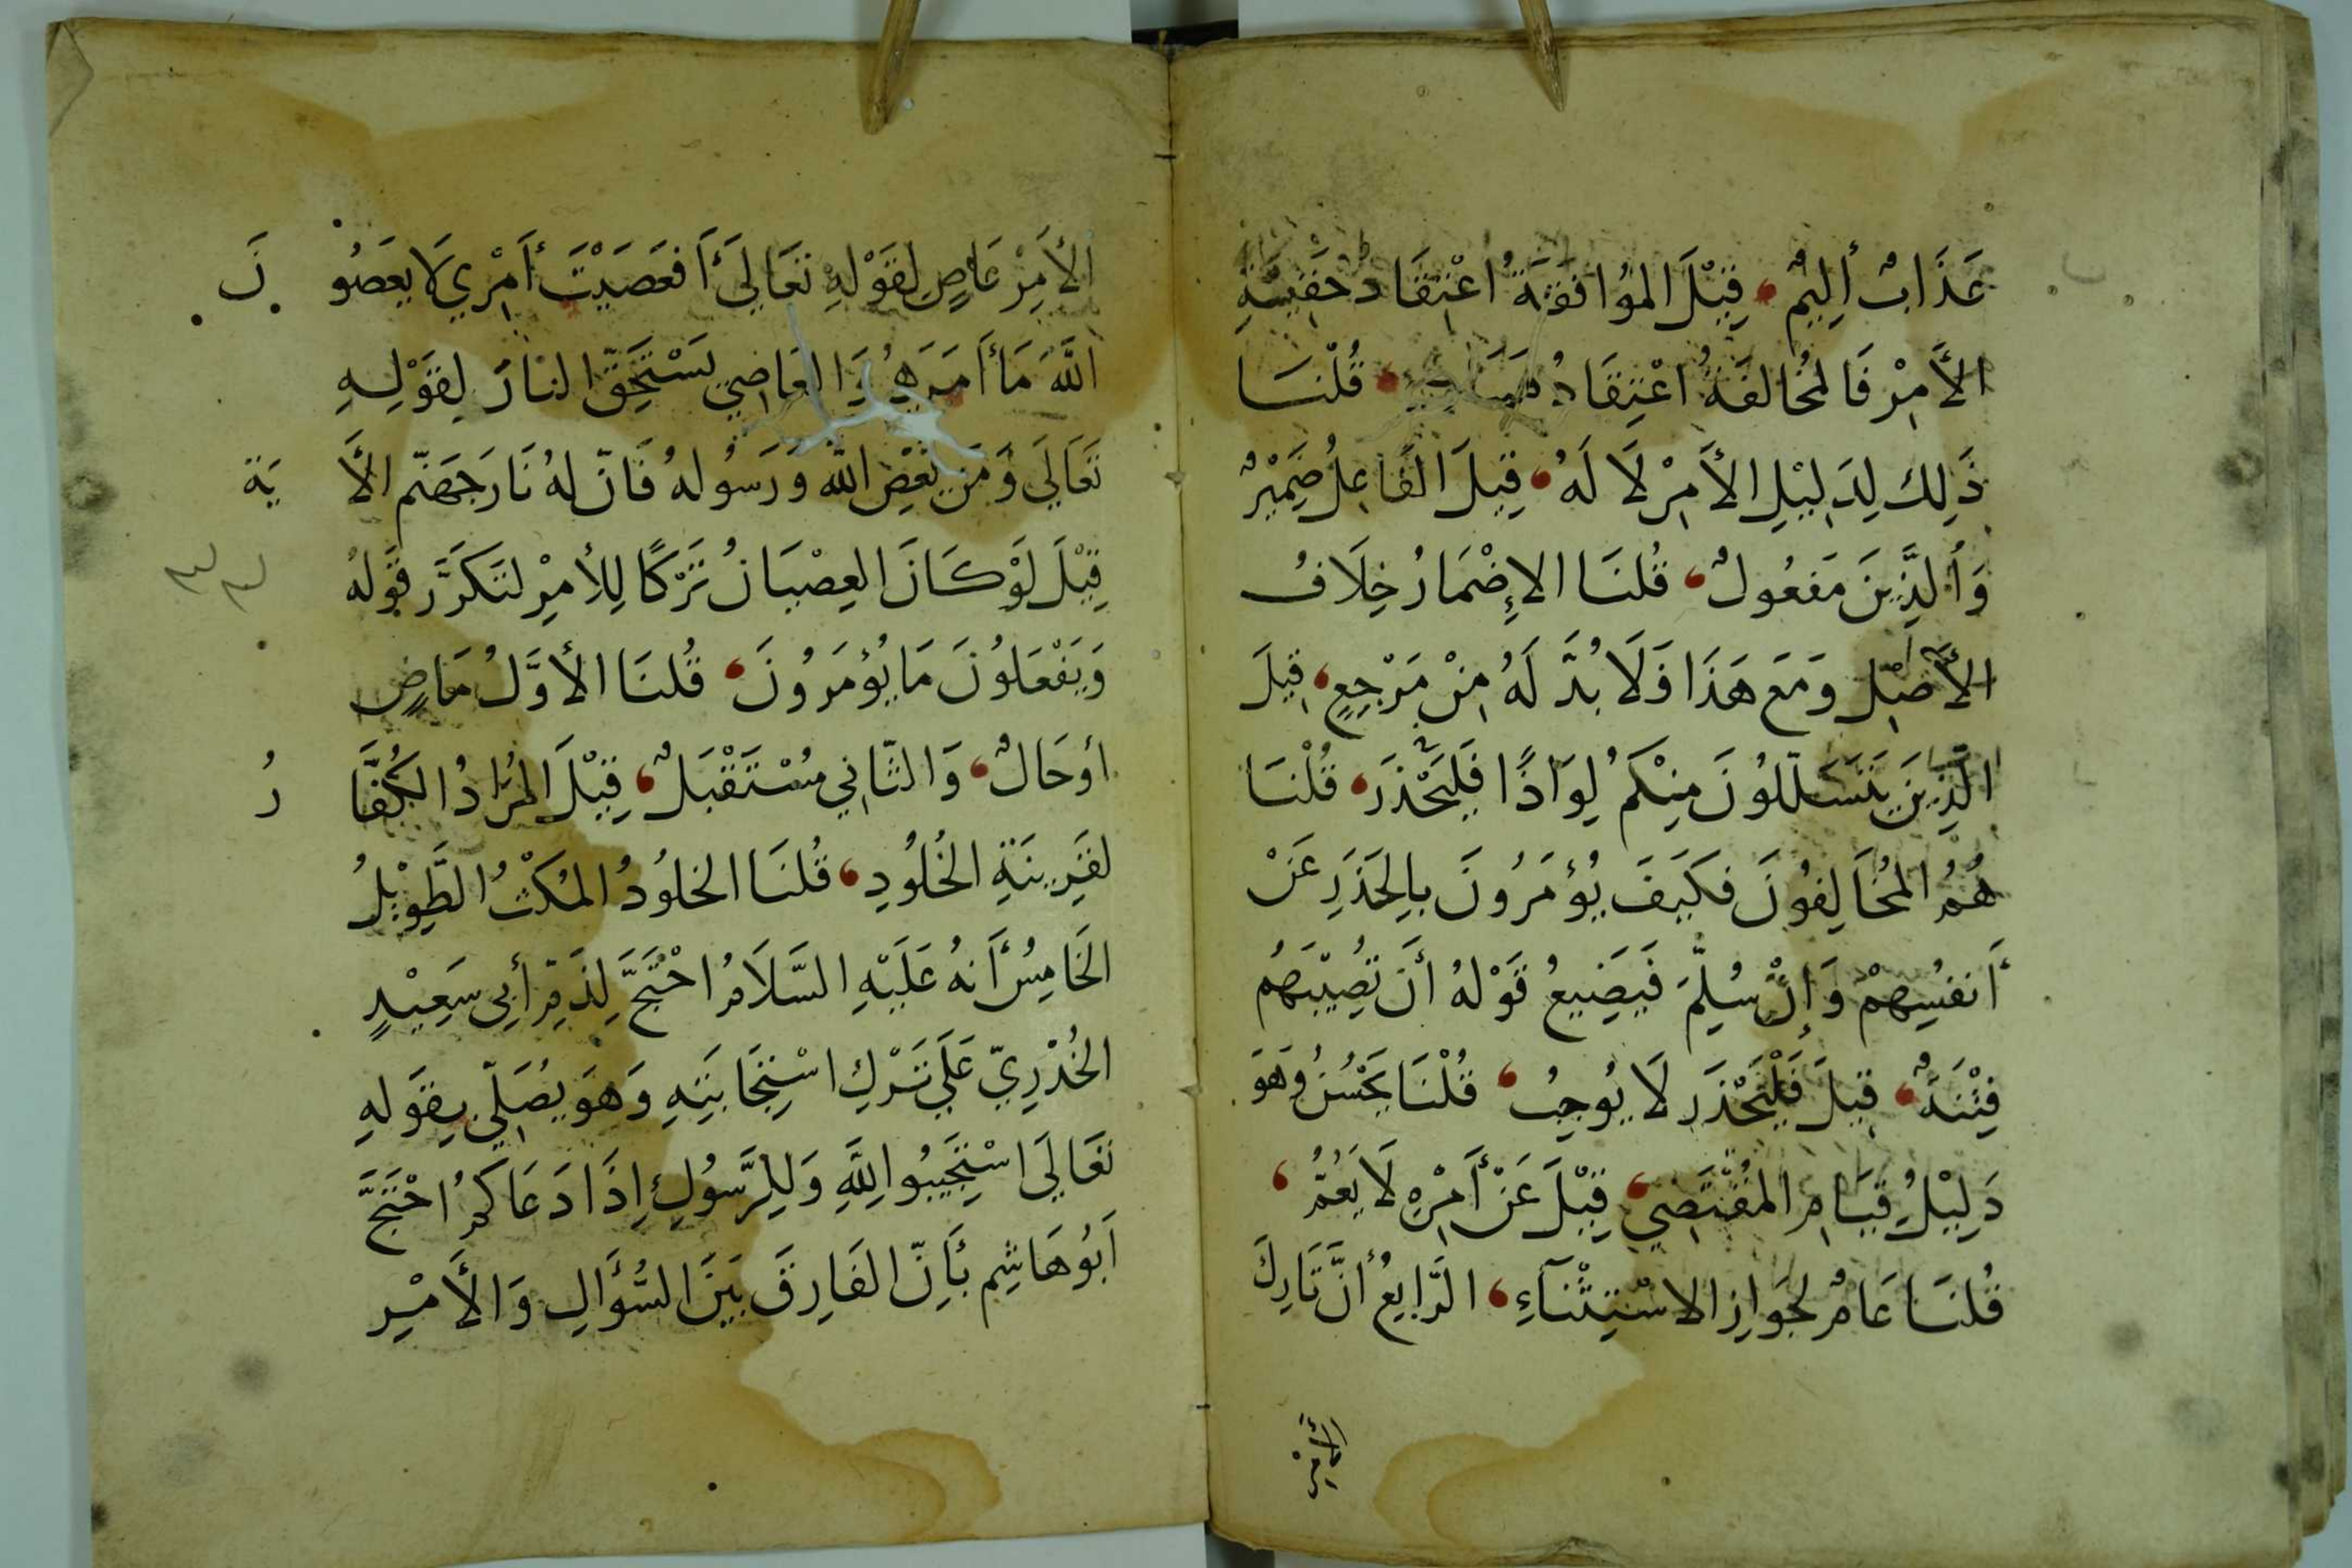 عَذَابٌ أَلِيمٌ، قِيْلَ المُوافقَةُ اعْتِقَادُ حَقِيَّةِ
الأَمِرْ فَالمُخَالفَةُ اعْتِقَادُ قُلْنَا
ذَلِكَ لِدَلِيْلِ الأَمِرْ لَا لَهُ، قِيلَ الفَاعِلُ ضَمِيْرٌ
وَالَّذِينَ مَفعُولٌ، قُلنَا الإِضْمَارُ خِلَافُ
الأَصْلِ وَمَعَ هَذَا فَلَا بُدَّ لَهُ مِنْ مَرْجِعٍ، قِيلَ
الَّذِينَ يَتَسَلّلوُنَ مِنْكمُ لِوَاذًا فَليَحْذَرَ، قُلْنَا
هُمُ المُخَالِفُونَ فكَيَفَ يُؤمَرُونَ بِالحَذَرِ عَنْ
أَنفُسِهِمْ وَإِنْ سُلِّمَ فَيَضِيعُ قَوْلهُ أَن تُصِيْبَهُم
فِتْنَةٌ، قِيلَ فَلْيَحْذَر لَا يُوجِبُ، قُلْنَا يَحْسُنُ وَهوَ
دَلِيْلُ قِيَامِ المُقْتَضِي، قِيْلَ عَنْ أَمْرِهِ لَا يَعُمُّ،
قُلنَا عَامٌ لجَوَازِ الاسْتِثْنَآءِ، الرَّابِعُ أَنَّ تَارِكَ
الأَمِرْ
الأَمِرْ عَاصٍ لِقَوْلهِ تَعَالىَ أَفعَصَيْتَ أَمْرِي لَا يعَصُونَ
اللَّهَ مَا أَمَرَهُم وَالعَاصِي يَسْتَحِقّ النارَ لِقوْلِهِ
تعَالَى وَمَن يَعْصِ الله وَرَسُولهُ فَانّ لهُ نَارَ جَهَنّم الأَيَة
قِيْلَ لَوْ كَانَ العِصْيَانُ تَرْكًا لِلأمِرْ لتَكَرَّرَ قوَلهُ
وَيَفْعَلوُنَ مَا يُؤمَرُونَ، قُلنَا الأوَّلُ مَاضٍ
أوحَالٌ، وَالثّانِي مُسْتَقْبَلٌ، قِيْلَ المُرَادُ الكُفَّارُ
لقَرِينَةِ الخُلوُدِ، قُلنَا الخلوُدُ المُكْثُ الطَّوِيْلُ
الخَامِسُ أَنهُ عَلَيْهِ السَّلَامُ احْتَجَّ لِذَمِّ أَبِي سَعِيْدٍ
الخُدْرِيّ عَلَى تَرْكِ اسْتِجَابَتِهِ وَهوَ يُصَلِّي بِقوَلهِ
تعَالَى اسْتَجِيبُوا لِلَّهِ وَلِلرَّسُولِ إِذَا دَعَاكمُ احْتَجَّ
أَبوُ هَاشِم بأَنّ الفَارِقَ بَيَنَ السُّؤَالِ وَالأَمْرِ